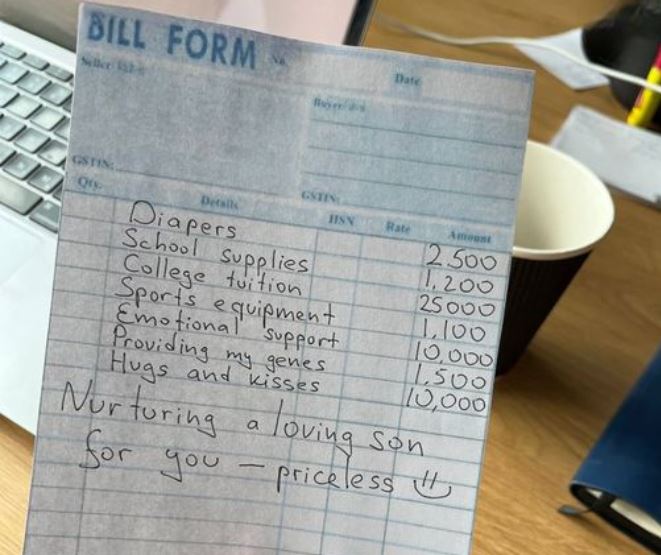 BILL FORM No.
Date
Seller
Buyer
GSTIN:
GSTIN:
Qty. Details HSN Rate Amount
Diapers 2,500
School supplies 1,200
College tuition 25000
Sports equipment 1,100
Emotional support 10,000
Providing my genes 1,500
Hugs and kisses 10,000
Nurturing a loving son
for you – priceless